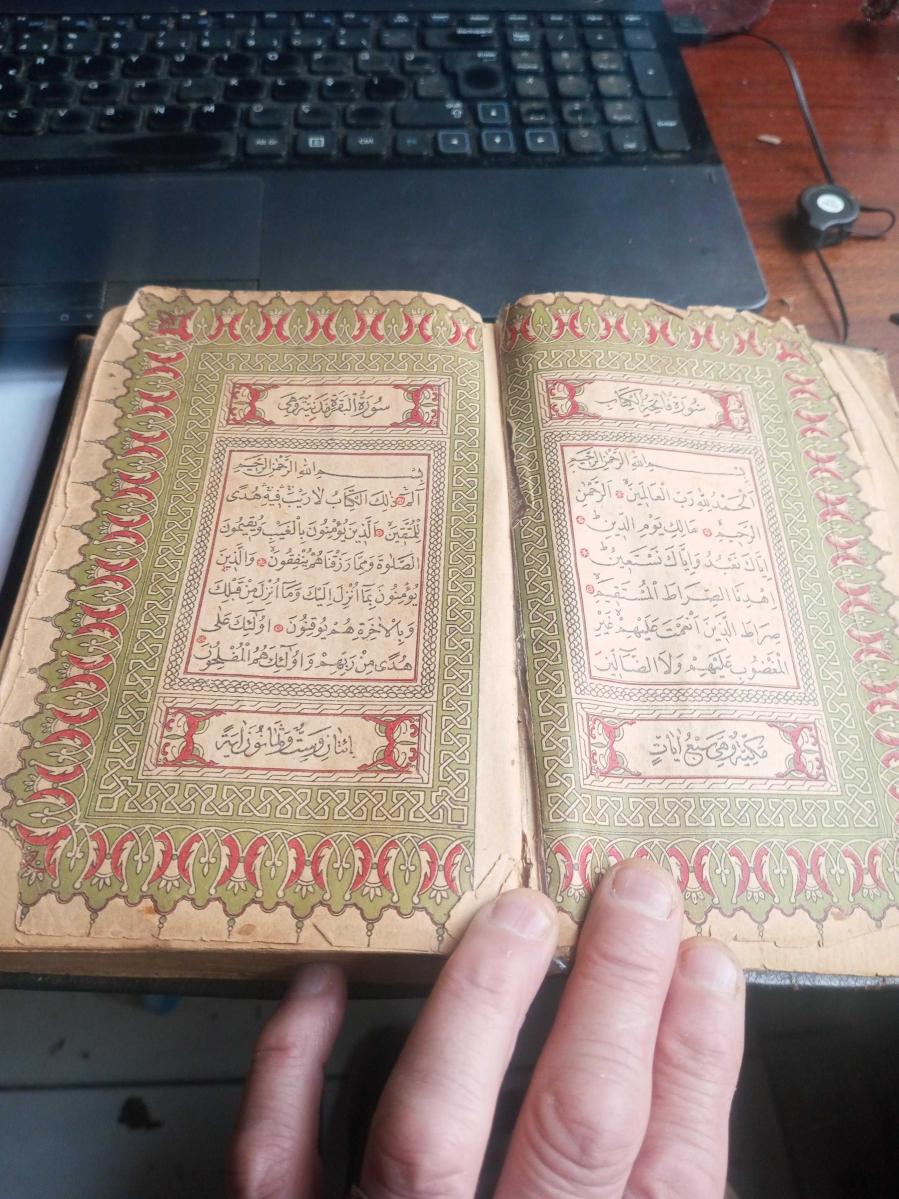 سورة فاتحة الكتاب
بسم الله الرحمن الرحيم
الحمد لله رب العالمين الرحمن
الرحيم مالك يوم الدين
اياك نعبد واياك نستعين
اهدنا الصراط المستقيم
صراط الذين انعمت عليهم غير
المغضوب عليهم ولا الضالين
مكية وهي سبع ايات
سورة البقرة مدنية وهي
بسم الله الرحمن الرحيم
الم ذلك الكتاب لا ريب فيه هدى
للمتقين الذين يؤمنون بالغيب ويقيمون
الصلوة ومما رزقناهم ينفقون والذين
يؤمنون بما انزل اليك وما انزل من قبلك
وبالاخرة هم يوقنون اولئك على
هدى من ربهم واولئك هم المفلحون
مائتان وست وثمانون اية